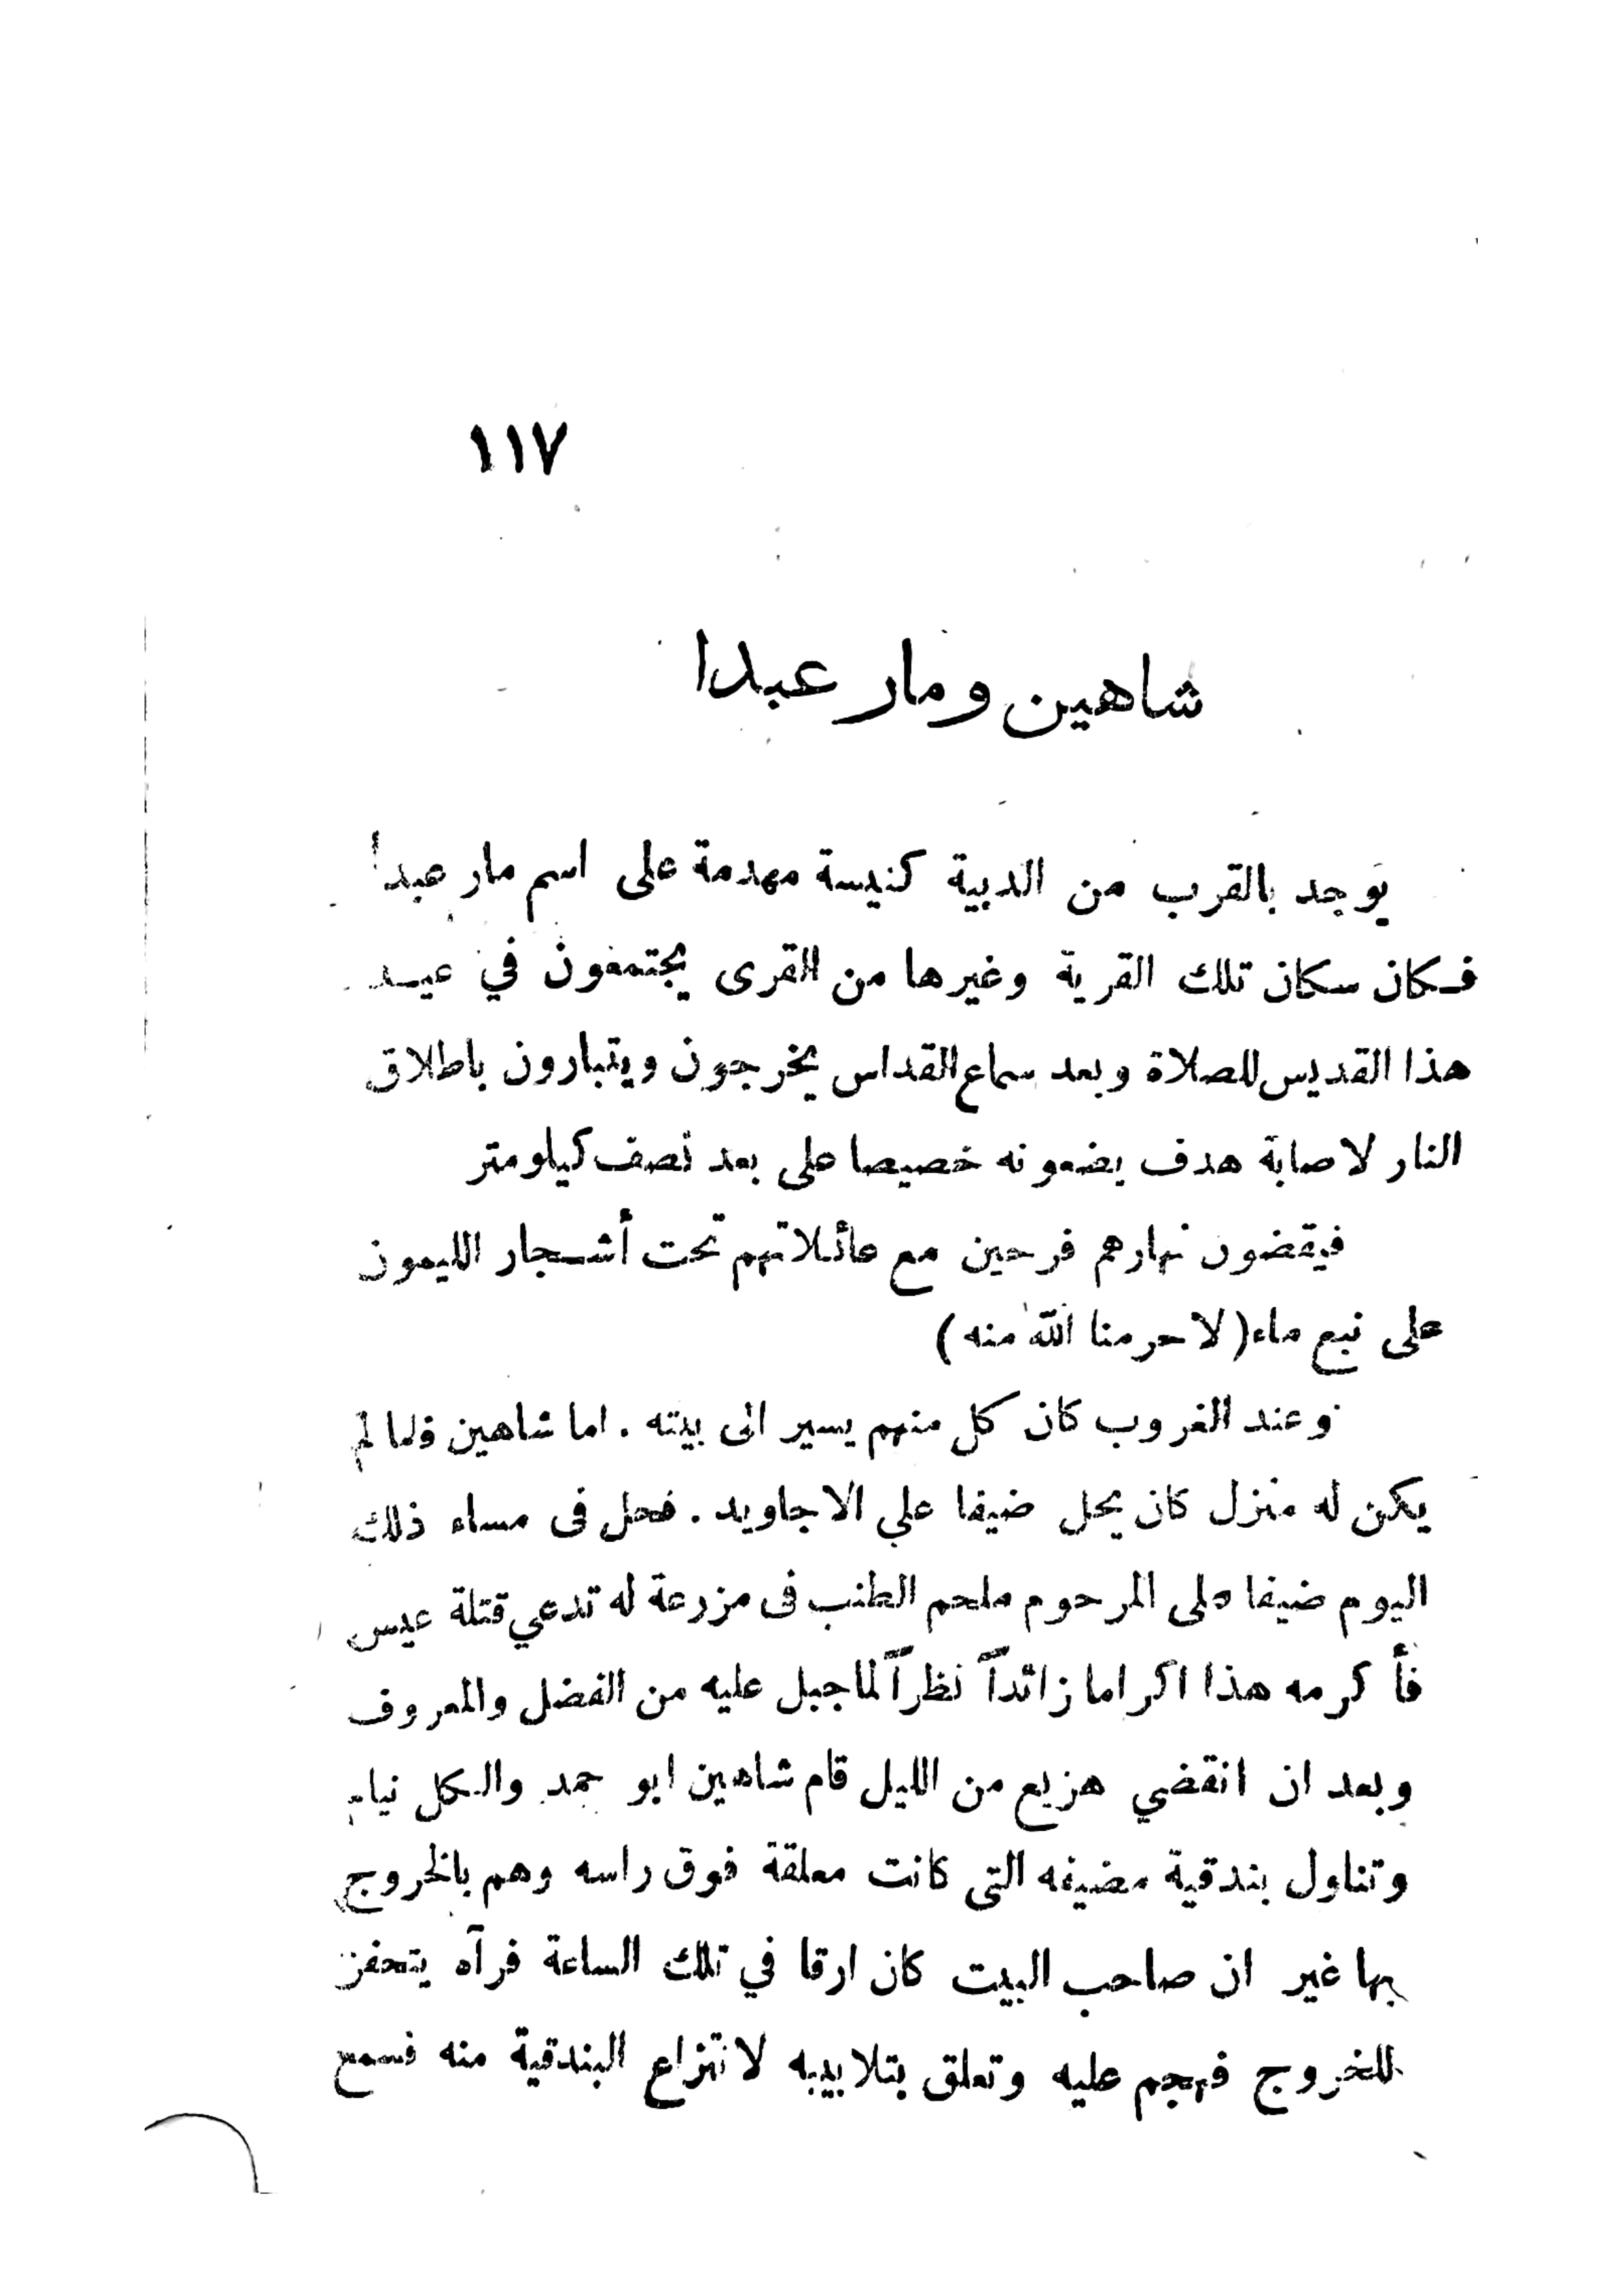 ١١٧
شاهين ومار عبدا
يوجد بالقرب من الدبية كنيسة مهدمة على اسم مار عبدا
فكان سكان تلك القرية وغيرها من القرى يجتمعون في عيد
هذا القديس للصلاة وبعد سماع القداس يخرجون ويتبارون باطلاق
النار لاصابة هدف يضعونه خصيصا على بعد نصف كيلومتر
فيقضون نهارهم فرحين مع عائلاتهم تحت أشجار الليمون
على نبع ماء (لا حرمنا الله منه)
وعند الغروب كان كل منهم يسير الى بيته . اما شاهين فلما لم
يكن له منزل كان يحل ضيفا علي الاجاويد . فحل فى مساء ذلك
اليوم ضيفا على المرحوم ملحم الطنب فى مزرعة له تدعي قتلة عيس
فأكرمه هذا اكراما زائداً نظراً لما جبل عليه من الفضل والمعروف
وبعد ان انقضي هزيع من الليل قام شاهين ابو حمد والكل نيام
وتناول بندقية مضيفه التى كانت معلقة فوق راسه وهم بالخروج
بها غير ان صاحب البيت كان ارقا في تلك الساعة فرآه يتحفز
للخروج فهجم عليه وتعلق بتلابيبه لانتزاع البندقية منه فسمع